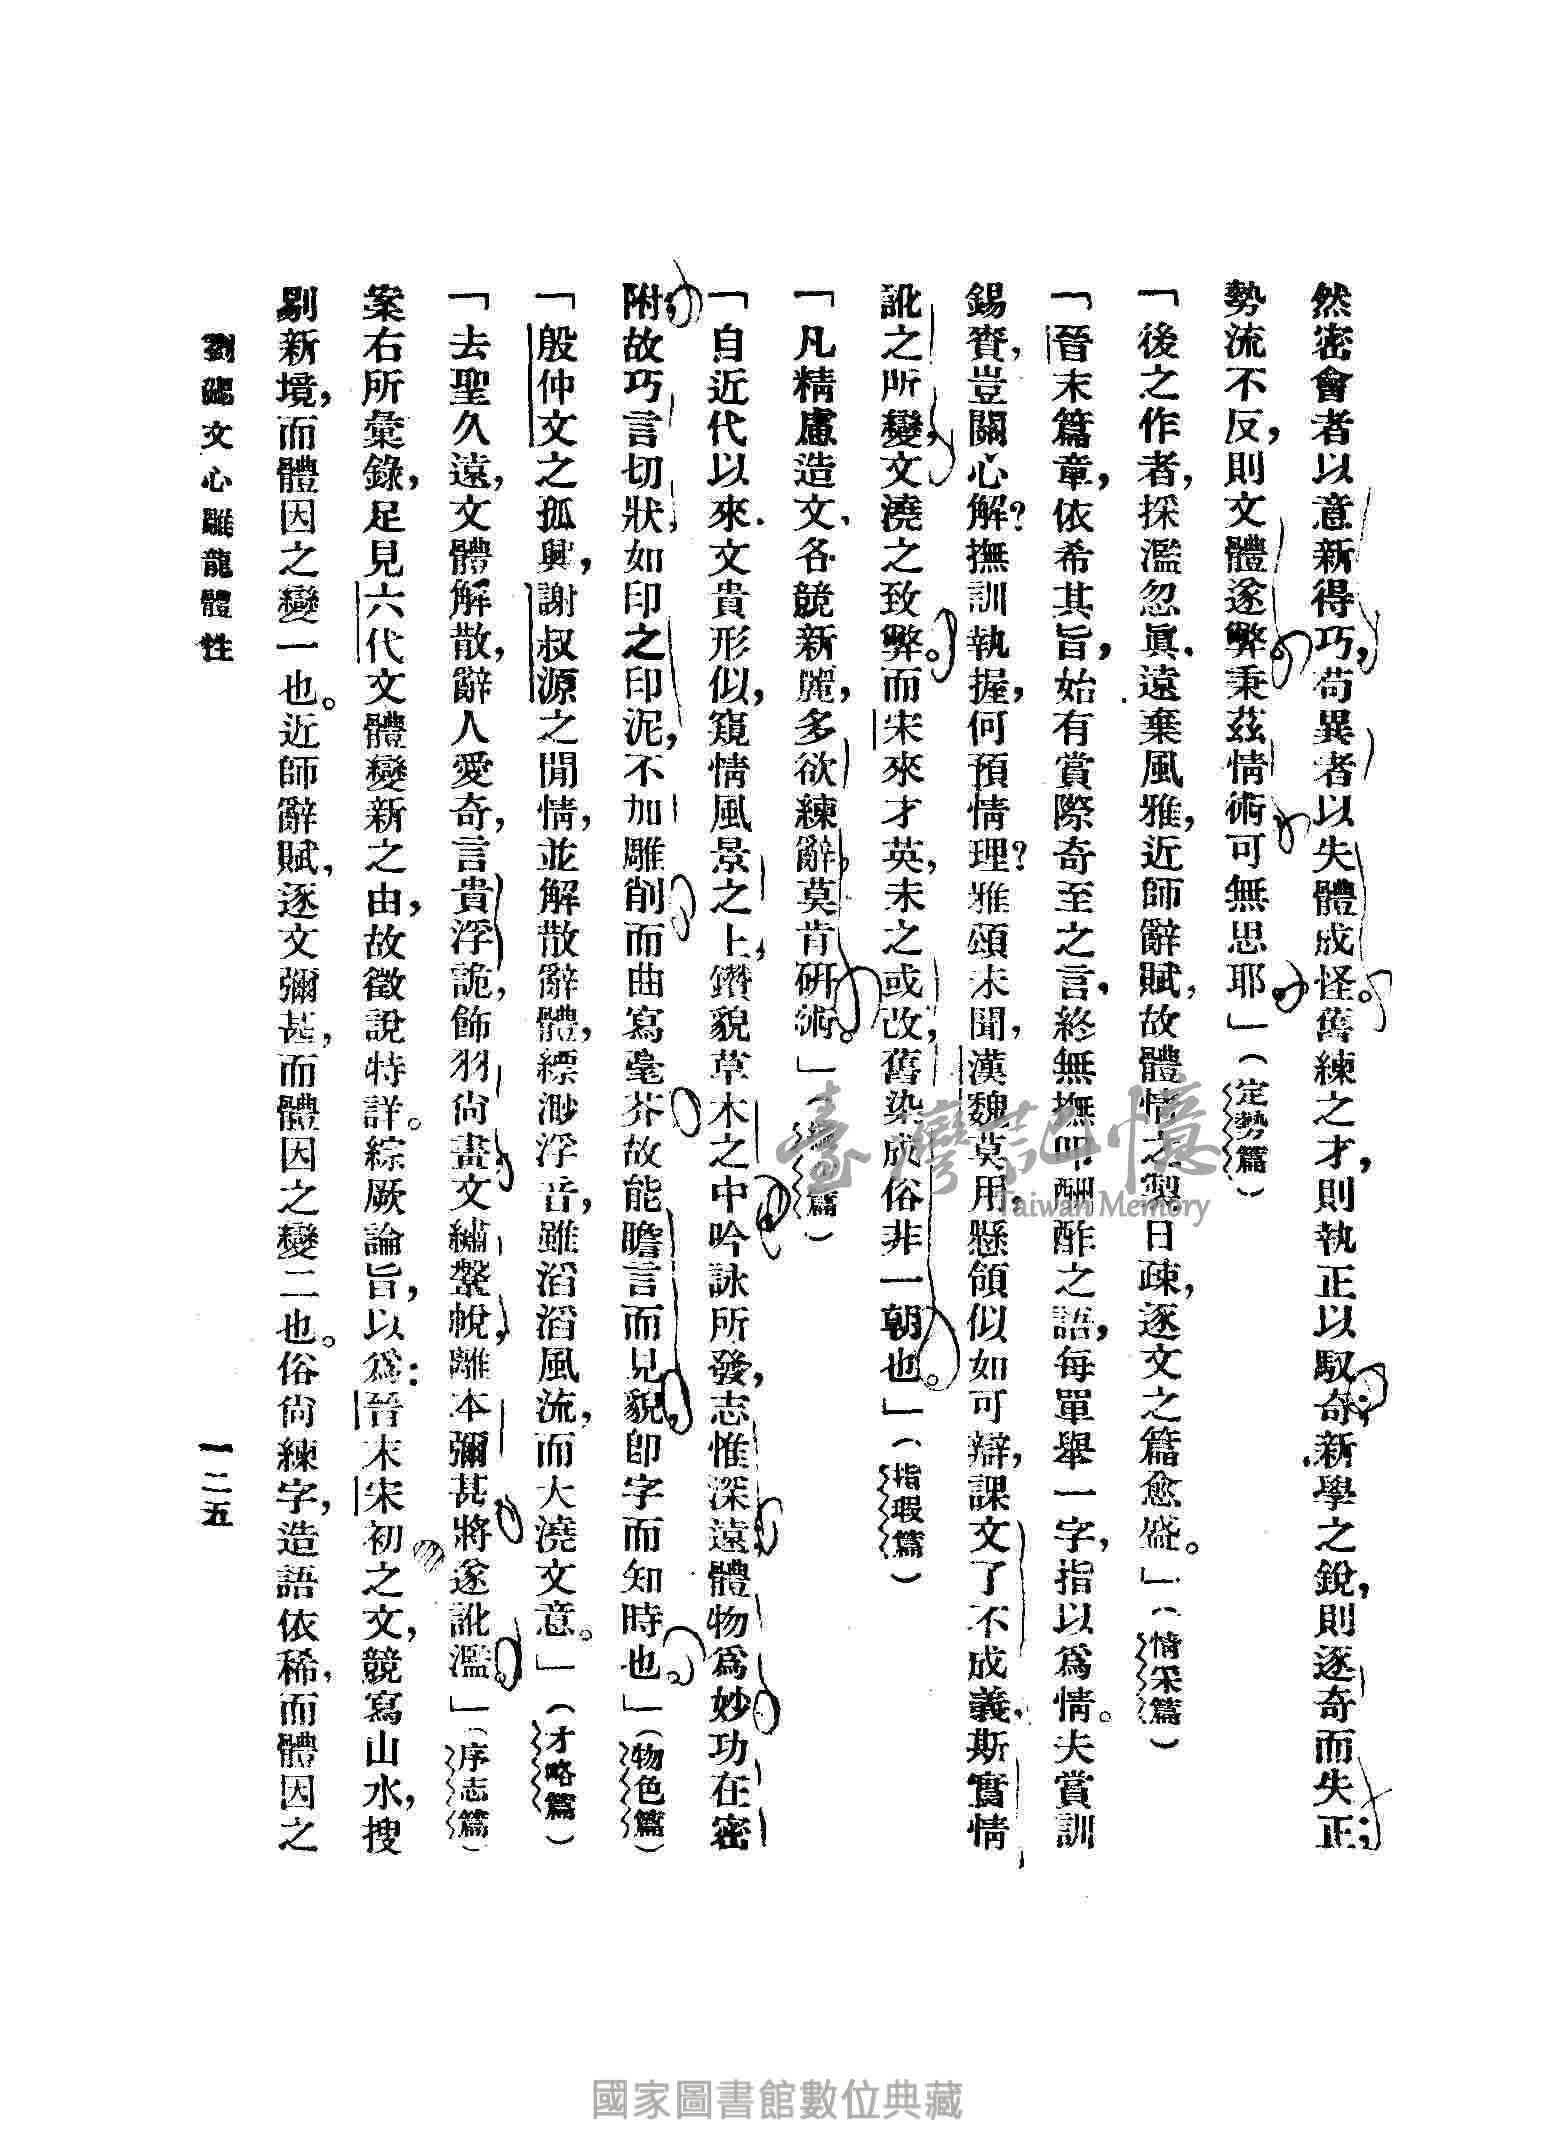 然密會者以意新得巧,苟異者以失體成怪。舊練之才,則執正以馭奇;新學之銳,則逐奇而失正;
勢流不反,則文體遂弊。秉茲情術,可無思耶」(定勢篇)
「後之作者,採濫忽眞,遠棄風雅,近師辭賦,故體情之製日疎,逐文之篇愈盛。」(情采篇)
「晉末篇章,依希其旨,始有賞際奇至之言,終無撫叩酬酢之語,每單舉一字,指以爲情。夫賞訓
錫賚,豈關心解?撫訓執握,何預情理?雅頌未聞,漢魏莫用,懸領似如可辯,課文了不成義,斯實情
訛之所變,文澆之致弊。而宋來才英,未之或改,舊染成俗,非一朝也。」(指瑕篇)
「凡精慮造文,各競新麗,多欲練辭,莫肯研術。」(篇)
「自近代以來,文貴形似,窺情風景之上,鑽貌草木之中,吟詠所發,志惟深遠,體物爲妙,功在密
附,故巧言切狀,如印之印泥,不加雕削,而曲寫毫芥,故能瞻言而見貌,卽字而知時也。」(物色篇)
「殷仲文之孤興,謝叔源之閒情,並解散辭體,縹渺浮音,雖滔滔風流,而大澆文意。」(才略篇)
「去聖久遠,文體解散,辭人愛奇,言貴浮詭,飾羽尙畫,文繡鞶帨,離本彌甚,將遂訛濫。」(序志篇)
案右所彙錄,足見六代文體變新之由,故徵說特詳。綜厥論旨,以爲:晉末宋初之文,競寫山水,搜
剔新境,而體因之變一也。近師辭賦,逐文彌甚,而體因之變二也。俗尙練字,造語依稀,而體因之
劉勰文心雕龍體性
一二五
臺灣記憶
Taiwan Memory
國家圖書館數位典藏